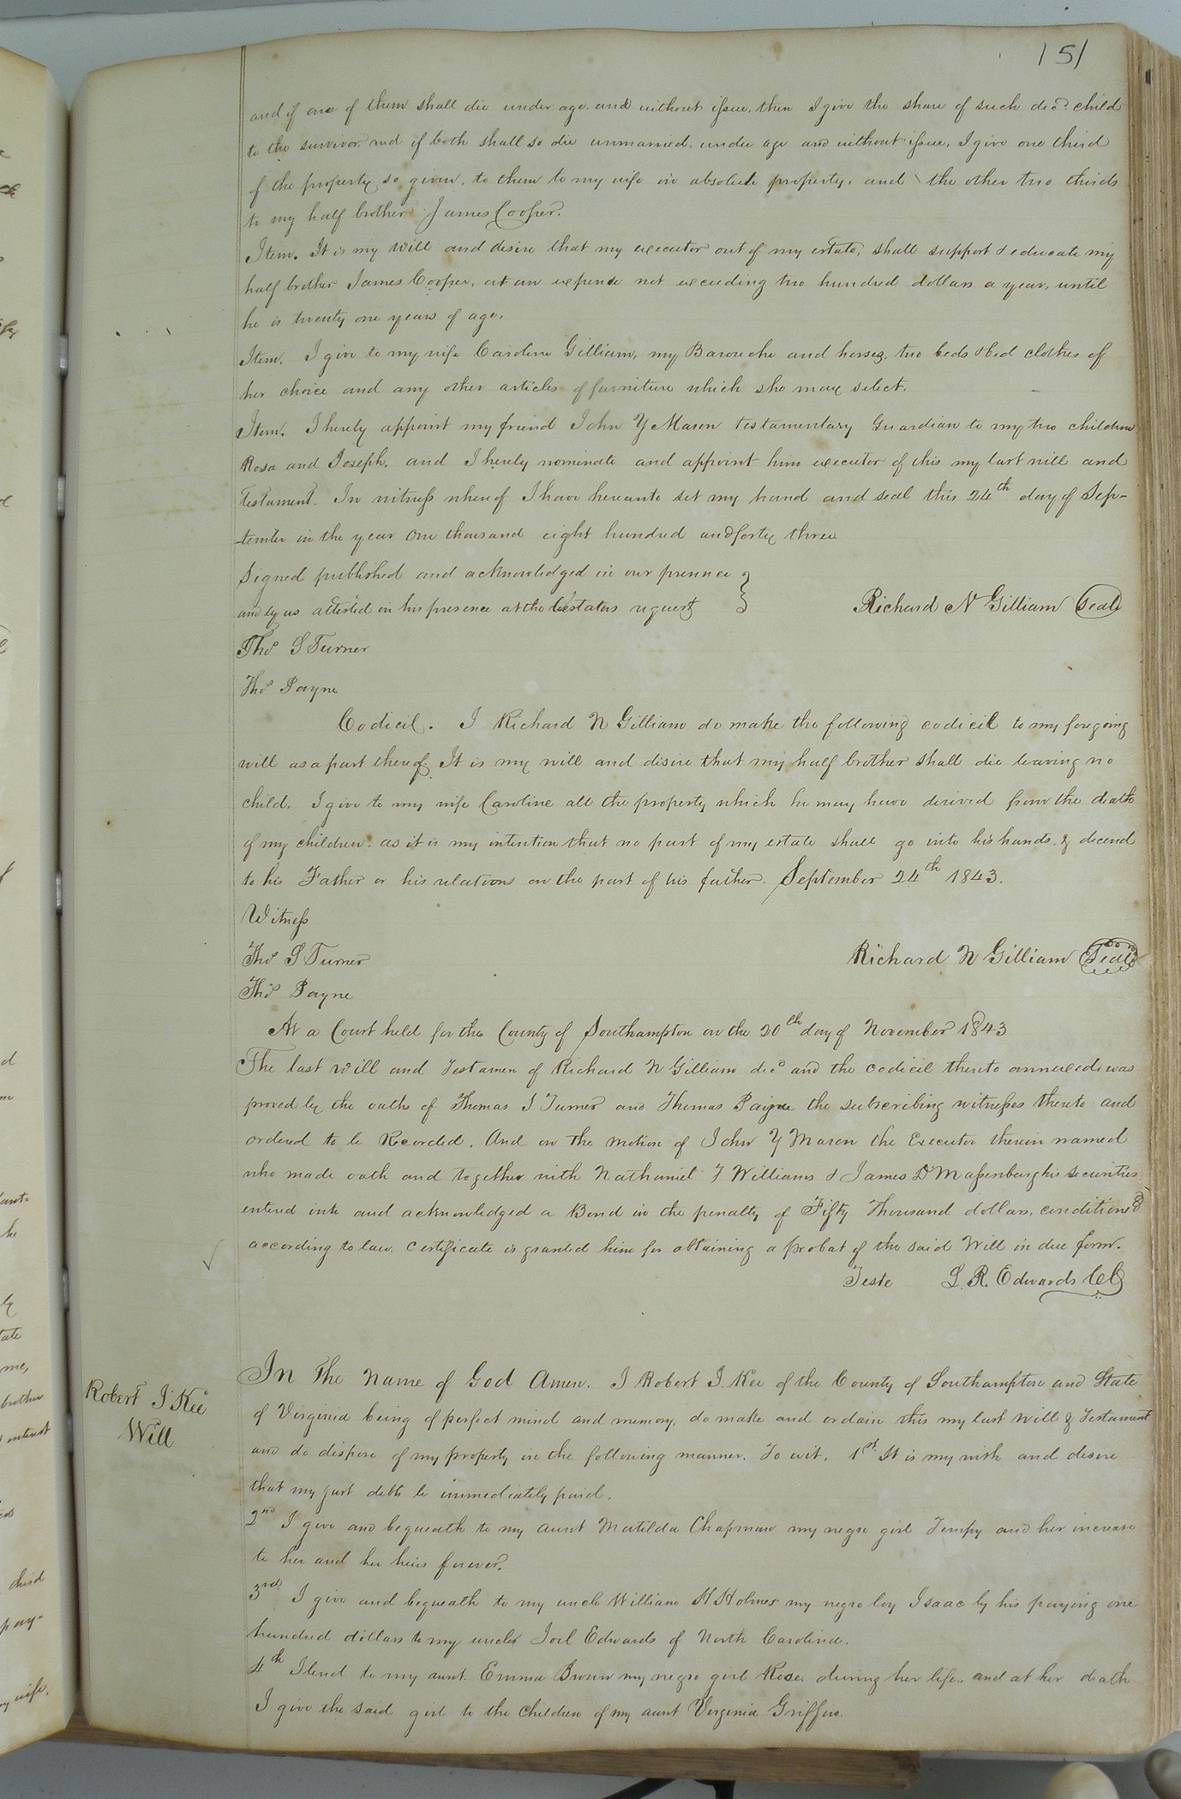 151
and if one of them shall die under age and without issue, then I give the share of such decd. child
to the survivor, and if both shall so die unmarried, under age and without issue, I give one third
of the property so given, to them to my wife in absolute property, and the other two thirds
to my half brother James Cooper.
Item. It is my will and desire that my executor out of my estate, shall support & educate my
half brother James Cooper, at an expense not exceeding two hundred dollars a year, until
he is twenty one years of age.
Item. I give to my wife Caroline Gilliam, my Barouche and horses, two beds & bed clothes of
her choice and any other articles of furniture which she may select.
Item. I hereby appoint my friend John Y Mason testamentary Guardian to my two children
Rosa and Joseph, and I hereby nominate and appoint him executor of this my last will and
testament. In witness whereof I have hereunto set my hand and seal this 24th day of Sep-
-tember in the year One thousand eight hundred and forty three
Signed published and acknowledged in our presence
and by us attested in his presence at the testators request
Richard N Gilliam Seal
Thos S Turner
Thos Payne
Codicil. I Richard N Gilliam do make the following codicil to my foregoing
will as a part thereof. It is my will and disire that my half brother shall die leaving no
child, I give to my wife Caroline all the property which he may have derived from the death
of my children. as it is my intention that no part of my estate shall go into his hands & decend
to his Father or his relations on the part of his father. September 24th 1843.
Witness
Thos S Turner
Richard N Gilliam Seal
Thos Payne
At a Court held for the County of Southampton on the 20th day of November 1843
The last will and Testamen of Richard N Gilliam decd and the codicil thereto annexed was
proved by the oaths of Thomas S Turner and Thomas Paine the subscribing witnesses thereto and
ordered to be Recorded. And on the motion of John Y Mason the Executor therein named
who made oath and together with Nathaniel T Williams & James D Massenburg his securities
entered into and acknowledged a Bond in the penalty of Fifty Thousand dollars, conditioned
according to law. Certificate is granted him for obtaining a probat of the said Will in due form.
Teste L. R. Edwards CC
Robert J Kee
Will
In The Name of God Amen. I Robert J. Kee of the County of Southampton and State
of Virginia being of perfect mind and memory, do make and ordain this my last will & Testament
and do dispose of my property in the following manner. To wit. 1st It is my wish and desire
that my just debts be immediately paid.
2nd I give and bequeath to my aunt Matilda Chapman my negro girl Tempy and her increase
to her and her heirs forever.
3rd I give and bequeath to my uncle William H Holmes my negro boy Isaac by his paying one
hundred dollars to my uncle Joel Edwards of North Carolina.
4th I lend to my aunt Emma Brown my negro girl Rose during her life and at her death
I give the said girl to the children of my aunt Virginia Griffin